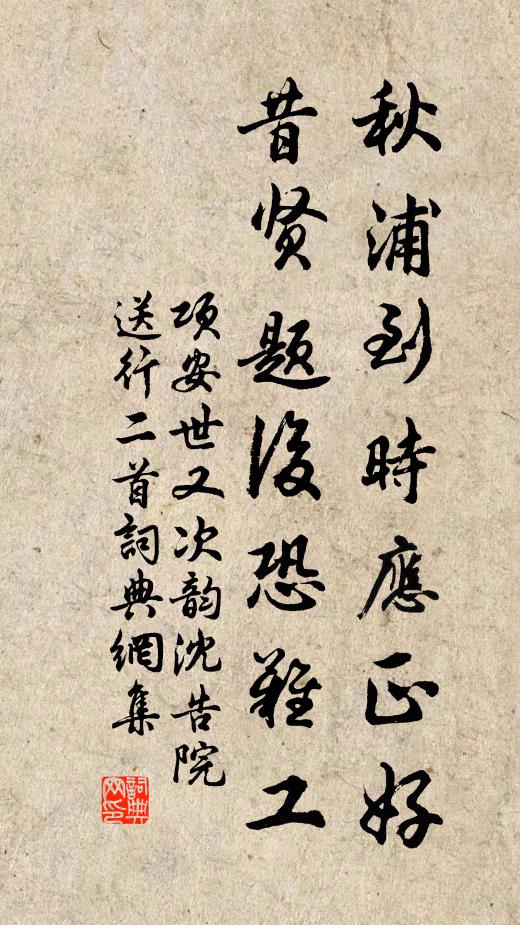 秋浦到時應正好
昔贤题後恐難工
项安世又次韵沈告院
送行二首詞典網集
詞典
网印